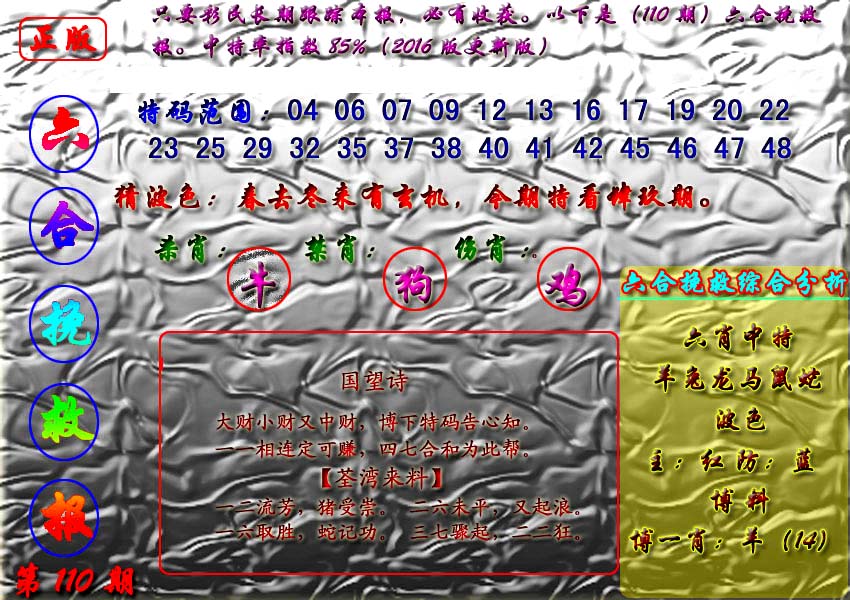 正版
只要彩民长期跟踪本报，必有收获。以下是（110 期）六合挽救
报。中特率指数 85%（2016 版更新版）
六合挽救报
第 110 期
特码范围：04 06 07 09 12 13 16 17 19 20 22
23 25 29 32 35 37 38 40 41 42 45 46 47 48
猜波色：春去冬来有玄机，今期特看肆玖期。
杀肖：牛 禁肖：狗 伤肖：鸡
国望诗
大财小财又中财，博下特码告心知。
一一相连定可赚，四七合和为此帮。
【荃湾来料】
一二流芳，猪受崇。 二六未平，又起浪。
一六取胜，蛇记功。 三七骤起，二二狂。
六合挽救综合分析
六肖中特
羊兔龙马鼠蛇
波色
主：红防：蓝
博料
博一肖：羊（14）